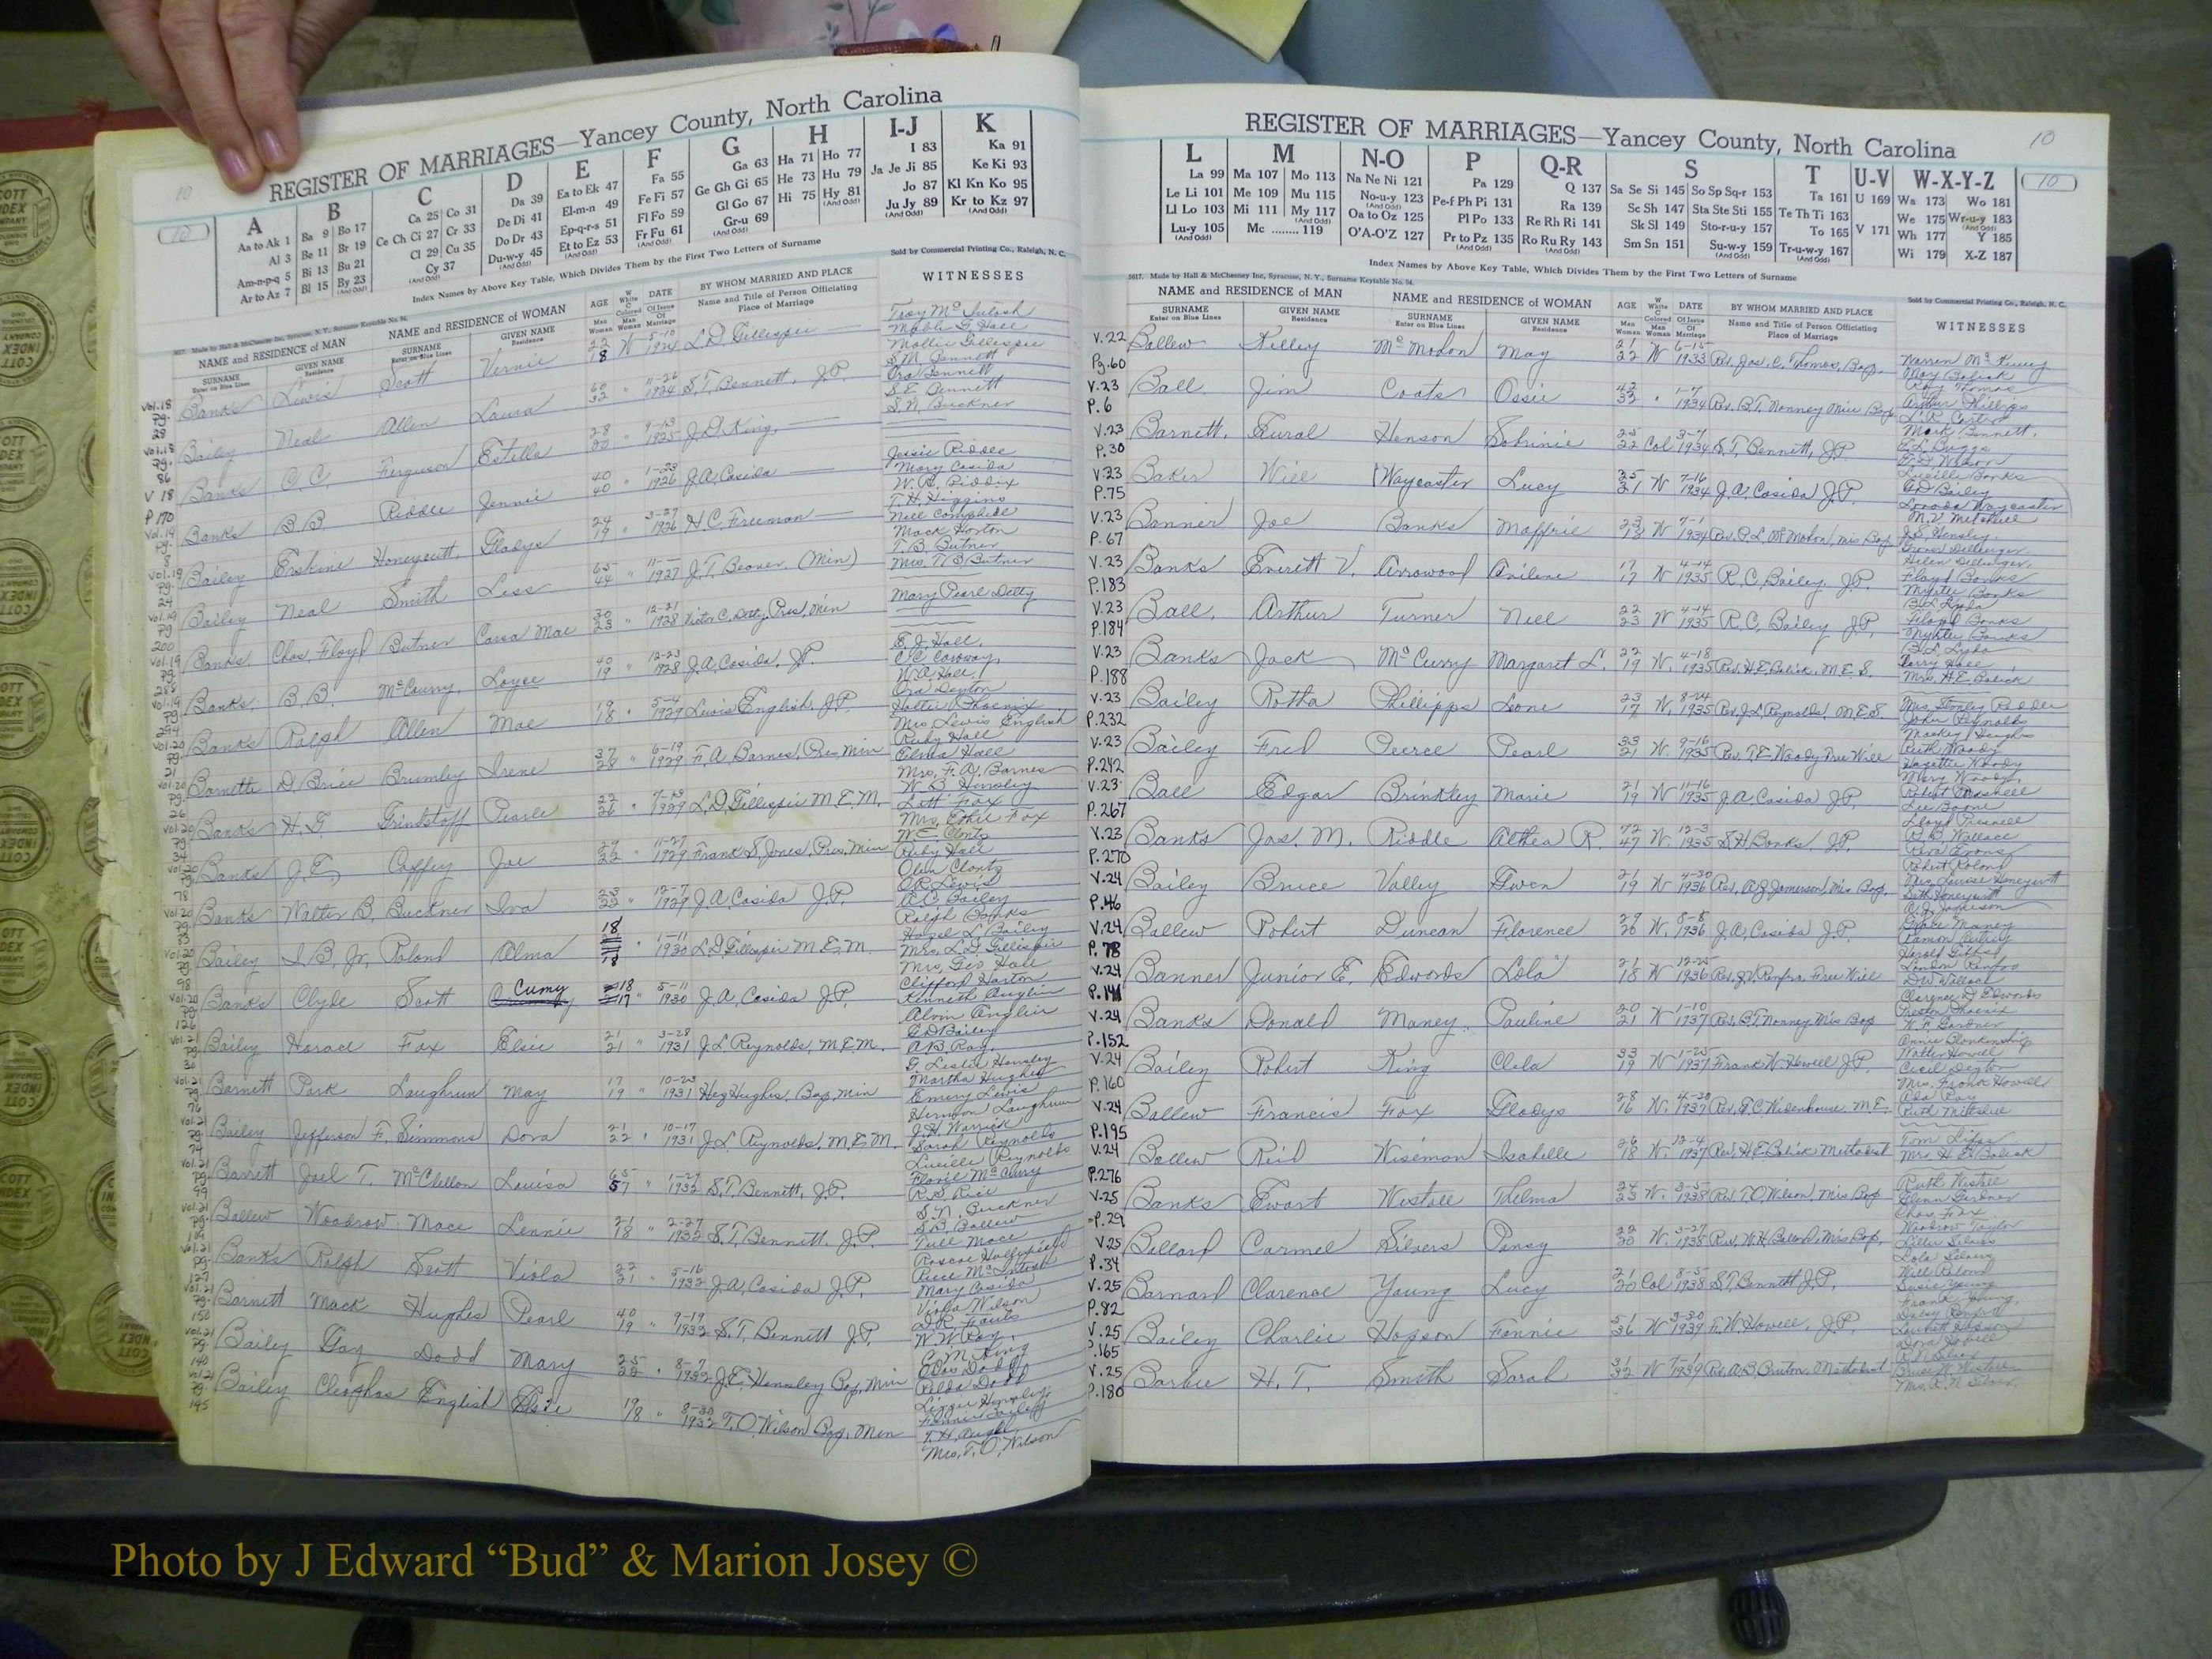 REGISTER OF MARRIAGES—Yancey County, North Carolina
10
A B C D E F G H I-J K
Aa to Ak 1 Ba 9 Bo 17 Ca 25 Co 31 Da 39 Ea to Ek 47 Fa 55 Ga 63 Ha 71 Ho 77 I 83 Ka 91
Al 3 Be 11 Br 19 Ce Ch Ci 27 Cr 33 De Di 41 El-m-n 49 Fe Fi 57 Ge Gh Gi 65 He 73 Hu 79 Ja Je Ji 85 Ke Ki 93
Am-n-p-q 5 Bi 13 Bu 21 Cl 29 Cu 35 Do Dr 43 Ep-q-r-s 51 Fl Fo 59 Gl Go 67 Hi 75 Hy 81 Jo 87 Kl Kn Ko 95
Ar to Az 7 Bl 15 By 23 Cy 37 Du-w-y 45 Et to Ez 53 Fr Fu 61 Gr-u 69 Ju Jy 89 Kr to Kz 97
Index Names by Above Key Table, Which Divides Them by the First Two Letters of Surname
Sold by Commercial Printing Co., Raleigh, N. C.
NAME and RESIDENCE of MAN NAME and RESIDENCE of WOMAN AGE DATE BY WHOM MARRIED AND PLACE WITNESSES
SURNAME GIVEN NAME SURNAME GIVEN NAME Name and Title of Person Officiating
Enter on Blue Lines Residence Enter on Blue Lines Residence Place of Marriage
Vol.18 Pg. 28 Banks Lewis Scott Vernie 22 18 W 5-10 1924 L.D. Gillespie
Vol.18 Pg. 86 Bailey Neal Allen Laura 60 32 " 11-26 1924 S.T. Bennett, J.P.
V 18 P 170 Banks O.C. Ferguson Estella 28 20 " 9-13 1925 J.D. King,
Vol.19 Pg. 8 Banks B.B. Riddle Jennie 40 40 " 1-23 1926 J.A. Casida
Vol.19 Pg. 24 Bailey Erskine Honeycutt, Gladys 24 19 " 3-27 1926 H.C. Freeman
Vol.19 Pg 200 Bailey Neal Smith Liss 65 44 " 11- 1927 J.T. Beaver (Min)
Vol.19 Pg Banks Chas. Floyd Butner Cassa Mae 30 23 " 12-21 1928 Victor C. Detty, Pres. Min
Vol.19 Pg. 294 Banks B.B. McCourry, Loyce 40 19 " 12-23 1928 J.A. Casida, J.P.
Vol.20 Pg. 21 Banks Ralph Allen Mae 19 18 " 5-4 1929 Lewis English, J.P.
Vol.20 Pg. 26 Barnette D. Brice Brumley Irene 37 28 " 6-19 1929 F.A. Barnes, Pres. Min
Vol.20 Pg 34 Banks H.G. Grindstaff Pearle 22 26 " 1929 L.D. Gillespie M.E.M.
Vol.20 Pg. 78 Banks J.E. Coffey Joe 11-27 1929 Frank S. Jones, Pres. Min
Vol.20 Pg. Banks Walter B. Buckner Iva 12-7 1929 J.A. Casida J.P.
Vol.20 Pg. 98 Bailey I.B. Jr. Poland Alma 18 18 " 1-11 1930 L.D. Gillespie M.E.M.
Vol.20 Pg 126 Banks Clyde Scott Cumy 18 17 " 5-11 1930 J.A. Casida J.P.
Vol.21 Pg Bailey Horace Fox Elsie 21 21 " 3-28 1931 J.L. Reynolds, M.E.M.
Vol.21 Pg. 76 Barnett Park Laughrun May 17 19 " 10-23 1931 Hez Hughes, Bap. Min
Vol.21 Pg. Bailey Jefferson F. Simmons Dora 21 22 " 10-17 1931 J.L. Reynolds, M.E.M.
Vol.21 Pg. 99 Barrett Joel T. McClellon Louisa 65 57 " 1-29 1932 S.T. Bennett, J.P.
Vol.21 Pg. Ballew Woodrow Mace Lennie 21 18 " 2-27 1932 S.T. Bennett, J.P.
Vol.21 Pg. 127 Banks Ralph Scott Viola 22 21 " 5-16 1932 J.A. Casida J.P.
Vol.21 Pg. 158 Barnett Mack Hughes Pearl 40 19 " 9-19 1932 S.T. Bennett J.P.
Vol.21 Pg. 140 Bailey Gay Dodd Mary 25 22 " 8-7 1932 J.E. Hensley Bap. Min
Vol.21 Pg. 145 Bailey Cleophas English Elsie 19 18 " 8-30 1932 T.O. Wilson Bap. Min
Troy McIntosh
Mable G. Hall
Mollie Gillespie
S.M. Bennett
Ora Bennett
S.E. Bennett
S.N. Buckner
Jessie Riddle
Mary Casida
W.R. Riddix
T.H. Higgins
Nell Campbell
Mack Horton
T.B. Butner
Mrs. T.B. Butner
Mary Pearl Detty
E.J. Hall,
C.C. Caraway,
W.A. Hall,
Ora Deyton
Hattie Phoenix
Mrs Lewis English
Ruby Hall
Elma Hall
Mrs. F.A. Barnes
W.B. Hensley
Lott Fox
Mrs. Ethel Fox
W.E. Clontz
Ruby Hall
Olen Clontz
O.R. Lewis
A.B. Bailey
Ralph Banks
Hazel L. Bailey
Mrs. L.D. Gillespie
Mrs. Geo Hall
Clifford Horton
Kenneth Anglin
Alvin Anglin
G.D. Bailey
A.B. Ray,
G. Leslie Hensley
Martha Hughes
Emery Lewis
Hermon Laughrun
J.H. Warrick
Sarah Reynolds
Lucille Reynolds
Flavil McCurry
R.S. Rice
S.N. Buckner
S.B. Ballew
Tull Mace
Roscoe Hollifield
Reece McIntosh
Mary Casida
Viola Wilson
D.R. Fouts
W.W. Ray,
E.M. King
Edis Dodd
Relda Dodd
Lizzie Hensley
Fannie Bailey
Mrs. T.O. Wilson
REGISTER OF MARRIAGES—Yancey County, North Carolina
10
10
L M N-O P Q-R S T U-V W-X-Y-Z
La 99 Ma 107 Mo 113 Na Ne Ni 121 Pa 129 Q 137 Sa Se Si 145 So Sp Sq-r 153 Ta 161 U 169 Wa 173 Wo 181
Le Li 101 Me 109 Mu 115 No-u-y 123 Pe-f Ph Pi 131 Ra 139 Sc Sh 147 Sta Ste Sti 155 Te Th Ti 163 We 175 Wr-u-y 183
Ll Lo 103 Mi 111 My 117 Oa to Oz 125 Pl Po 133 Re Rh Ri 141 Sk Sl 149 Sto-r-u-y 157 To 165 V 171 Wh 177 Y 185
Lu-y 105 Mc ........ 119 O'A-O'Z 127 Pr to Pz 135 Ro Ru Ry 143 Sm Sn 151 Su-w-y 159 Tr-u-w-y 167 Wi 179 X-Z 187
Index Names by Above Key Table, Which Divides Them by the First Two Letters of Surname
Made by Hall & McChesney Inc, Syracuse, N. Y., Surname Keytable No. 94.
Sold by Commercial Printing Co., Raleigh, N. C.
NAME and RESIDENCE of MAN NAME and RESIDENCE of WOMAN AGE DATE BY WHOM MARRIED AND PLACE WITNESSES
SURNAME GIVEN NAME SURNAME GIVEN NAME Name and Title of Person Officiating
Enter on Blue Lines Residence Enter on Blue Lines Residence Place of Marriage
V.22 Pg.60 Ballew Kelley McMahon May 21 22 W 6-15 1933 Rev. Jas. C. Thomas, Bap.
V.23 P.6 Ball Jim Coats Ossie 42 33 " 1-7 1934 Rev. B.T. Nanney Miss Bap
V.23 P.30 Barnett, Rural Henson Sabrinie 25 22 Col 3-7 1934 S.T. Bennett, J.P.
V.23 P.75 Baker Will Waycaster Lucy 35 21 W 7-16 1934 J.A. Casida J.P.
V.23 P.67 Banner Joe Banks Maffrie 23 18 W 7-1 1934 Rev. P.L. McMahon, Mis Bap
V.23 P.183 Banks Everett V. Arrowood Avilene 17 17 W 4-14 1935 R.C. Bailey, J.P.
V.23 P.184 Ball, Arthur Turner Nell 22 23 W 4-14 1935 R.C. Bailey J.P.
V.23 P.188 Banks Jack McCurry Margaret L. 22 19 W. 4-18 1935 Rev. H.E. Bolick, M.E.S.
V.23 P.232 Bailey Rotha Phillipps Leone 23 17 W. 8-24 1935 Rev. J.L. Reynolds, M.E.S.
V.23 P.242 Bailey Fred Peerce Pearl 33 21 W. 9-16 1935 Rev. T.E. Woody Free Will
V.23 P.267 Ball Edgar Brinkley Marie 21 19 W 11-16 1935 J.A. Casida J.P.
V.23 P.270 Banks Jas. M. Riddle Althea R. 72 47 W. 12-3 1935 S.H. Banks, J.P.
V.24 P.46 Bailey Bruce Valley Gwen 21 19 W 4-30 1936 Rev. A.J. Jamerson Mis Bap.
V.24 P.78 Ballew Robert Duncan Florence 29 20 W. 8-8 1936 J.A. Casida J.P.
V.24 P.141 Banner Junior E. Edwards Lola 21 18 W 12-25 1936 Rev. J.V. Renfro, Free Will
V.24 P.152 Banks Donald Maney Pauline 20 21 W 1-10 1937 Rev. B.T. Nanney Mis Bap
V.24 P.160 Bailey Robert King Clela 33 19 W 1-25 1937 Frank W. Howell J.P.
V.24 P.195 Ballew Francis Fox Gladys 28 16 W. 4-20 1937 Rev. G.C. Widenhouse, M.E.
V.24 P.276 Ballew Reid Wiseman Isabelle 26 18 W. 12-4 1937 Rev. H.E. Bolick Methodist
V.25 P.29 Banks Ewart Westall Thelma 24 23 W. 3-5 1938 Rev. T.O. Wilson, Mis Bap
V.25 P.34 Ballard Carmel Silvers Pansy 22 20 W. 3-27 1938 Rev. W.H. Ballard, Mis Bap.
V.25 P.82 Barnard Clarence Young Lucy 21 20 Col 8-5 1938 S.T. Bennett J.P.
V.25 .165 Bailey Charlie Hopson Fannie 51 36 W 3-30 1939 F.W. Howell, J.P.
V.25 P.180 Barbee H.T. Smith Sarah 31 32 W 1939 Rev. A.B. Bruton, Methodist
Warren McKinney
May Bolick
Ray Thomas
Arthur Phillips
J.R. Carter
Mark Bennett,
E.L. Briggs
Lucille Banks
G.D. Bailey
Lorada Waycaster
M.V. Mitchell
J.S. Hensley
Grover Dellinger
Helen Dellinger,
Floyd Banks
Myrtle Banks
B.L. Lyda
Floyd Banks
Myrtle Banks
B.L. Lyda
Larry Hall
Mrs. H.E. Bolick
Mrs. Stanley Riddle
John Reynolds
Mackey Hughes
Ruth Woody
Hazettie Woody
Mary Woody,
Robert Presnell
Lee Boone
Lloyd Presnell
R.B. Wallace
Reva Evans
Robert Roland
Mrs. Louise Honeycutt
Seth Honeycutt
A.J. Jamerson
Blake Maney
Ramon Autrey
Harold Gibbs
Landon Renfro
D.W. Wallace
Clarence D. Edwards
Preston Phoenix
W.F. Gardner
Annie Blankenship
Walter Howell
Cecil Deyton
Mrs. Frank Howell
Ada Ray
Ruth Mitchell
Tom Sifar
Mrs H.E. Bolick
Ruth Westall
Glenn Gardner
Chas. Fox
Woodrow Taylor
Lillie Silvers
Lola Silvers
Will Roland
Susie Young
Frank Young,
Daisy Renfro
Luckett Hopson
Dora Howell
R.N. Silver
Bruce W. Westall
Mrs. R.N. Silver
Photo by J Edward “Bud” & Marion Josey ©